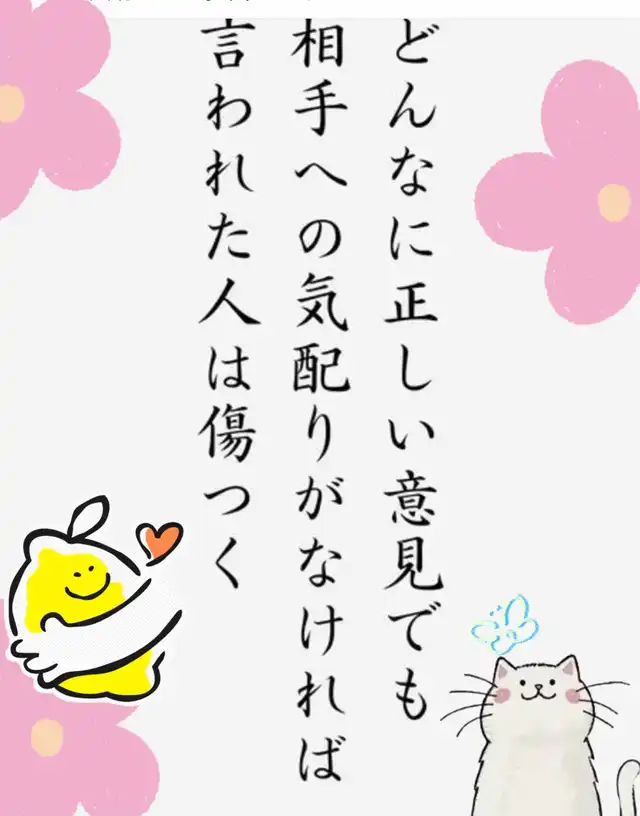 どんなに正しい意見でも
相手への気配りがなければ
言われた人は傷つく